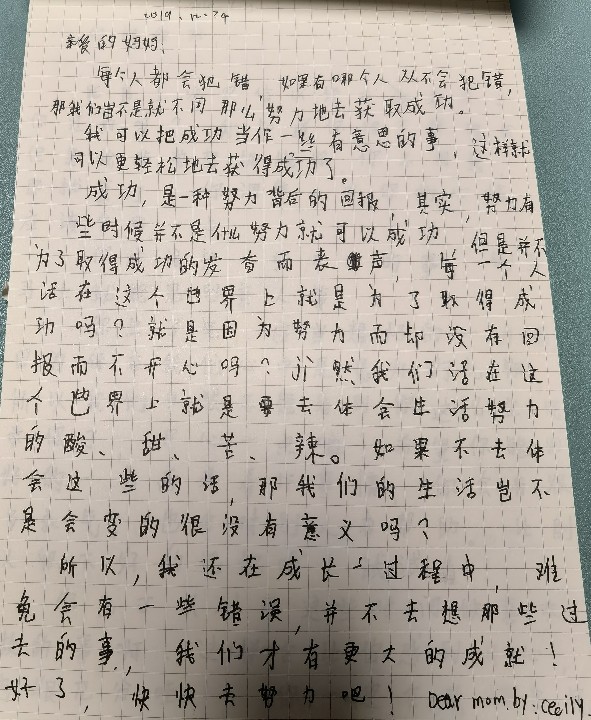 2019.12.24
亲爱的妈妈
每个人都会犯错,如果有哪个人从不会犯错,
那我们岂不是就不用那么努力地去获取成功。
我可以把成功当作一些有意思的事,这样就
可以更轻松地去获得成功了。
成功,是一种努力背后的回报,其实,努力有
些时候并不是什么努力就可以成功,但是并不
为了取得成功的发奋而表声,每一个人
活在这个世界上就是为了取得成
功吗?就是因为努力而却没有回
报而不开心吗?当然我们活在这
个世界上就是要去体会生活努力
的酸、甜、苦、辣。如果不去体
会这些的话,那我们的生活岂不
是会变的很没有意义吗?
所以,我还在成长上过程中,难
免会有一些错误,并不去想那些过
去的事,我们才有更大的成就!
好了,快快去努力吧! Dear mom.by:cecily.